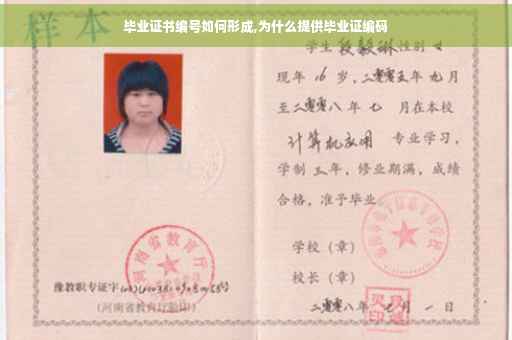 毕业证书编号如何形成,为什么提供毕业证编码
样本
学生 段毅琳 性别 女
现年 16 岁,二零零五年 九 月
至二零零八年 七 月在本校
计算机应用 专业学习,
学制 三 年,修业期满,成绩
合格,准予毕业。
学校（章）
校长（章）
二零零八年 七 月 一 日
河南省教育厅
豫教职专证字
（河南省教育厅验印）